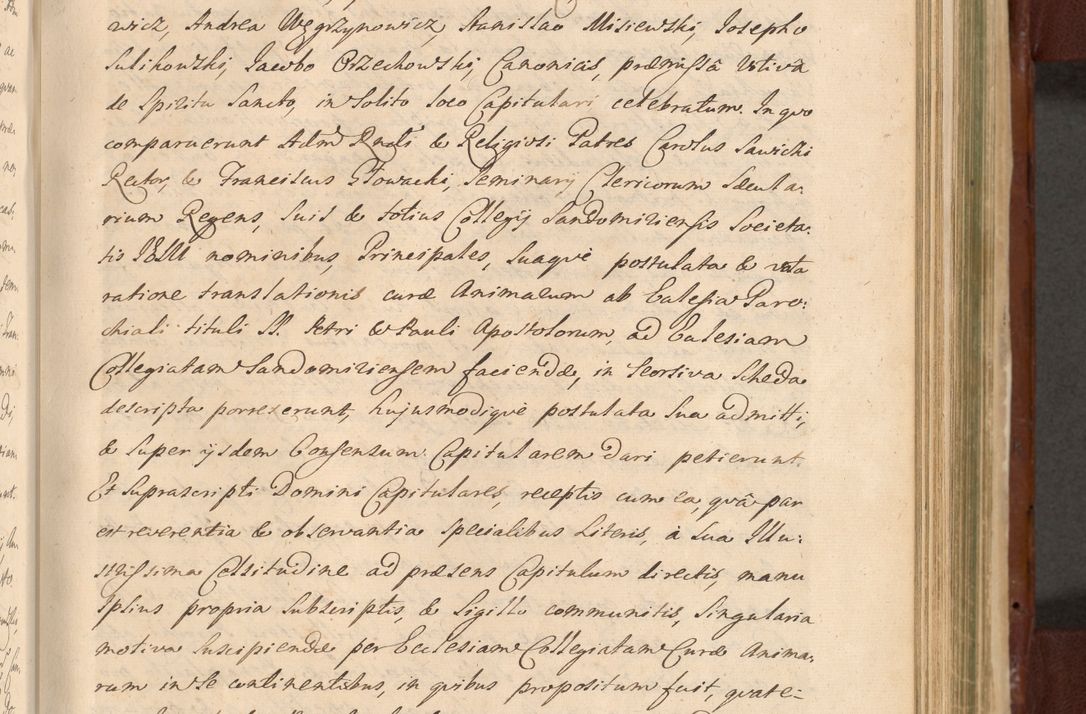 wicz, Andrea Węgrzynowicz, Stanislao Misiewski, Iosepho
Sulikowski, Iacobo Orzechowski, Canonicis, præmissâ Votivâ
de Spiritu Sancto, in solito loco Capitulari celebratum. In quo
comparuerunt Adm Rndi & Religiosi Patres Carolus Sawicki
Rector, & Franciscus Głowacki, Seminarij Clericorum Sæcula-
rium Regens, Suis & totius Collegij Sandomiriensis Societa-
tis IESU nominibus, Principales, Suaquè postulata & vota
ratione translationis curæ Animarum ab Eclesia Paro-
chiali tituli SS. Petri & Pauli Apostolorum, ad Eclesiam
Collegiatam Sandomiriensem faciendæ, in Seorsiva Scheda
descripta porrexerunt, hujusmodiquè postulata Sua admitti,
& Super ijsdem Consensum Capitularem Dari petierunt.
Et Suprascripti Domini Capitulares, receptis cum ea, quâ par
est reverentia & observantia Specialibus Literis, à Sua Illu-
strissima Celsitudine ad præsens Capitulum directis, manu
Ipsius propria Subscriptis, & Sigillo communitis, Singularia
motiva Suscipiendæ per Ecclesiam Collegiatam Curæ Anima-
rum in Se continentibus, in quibus propositum fuit, quate-